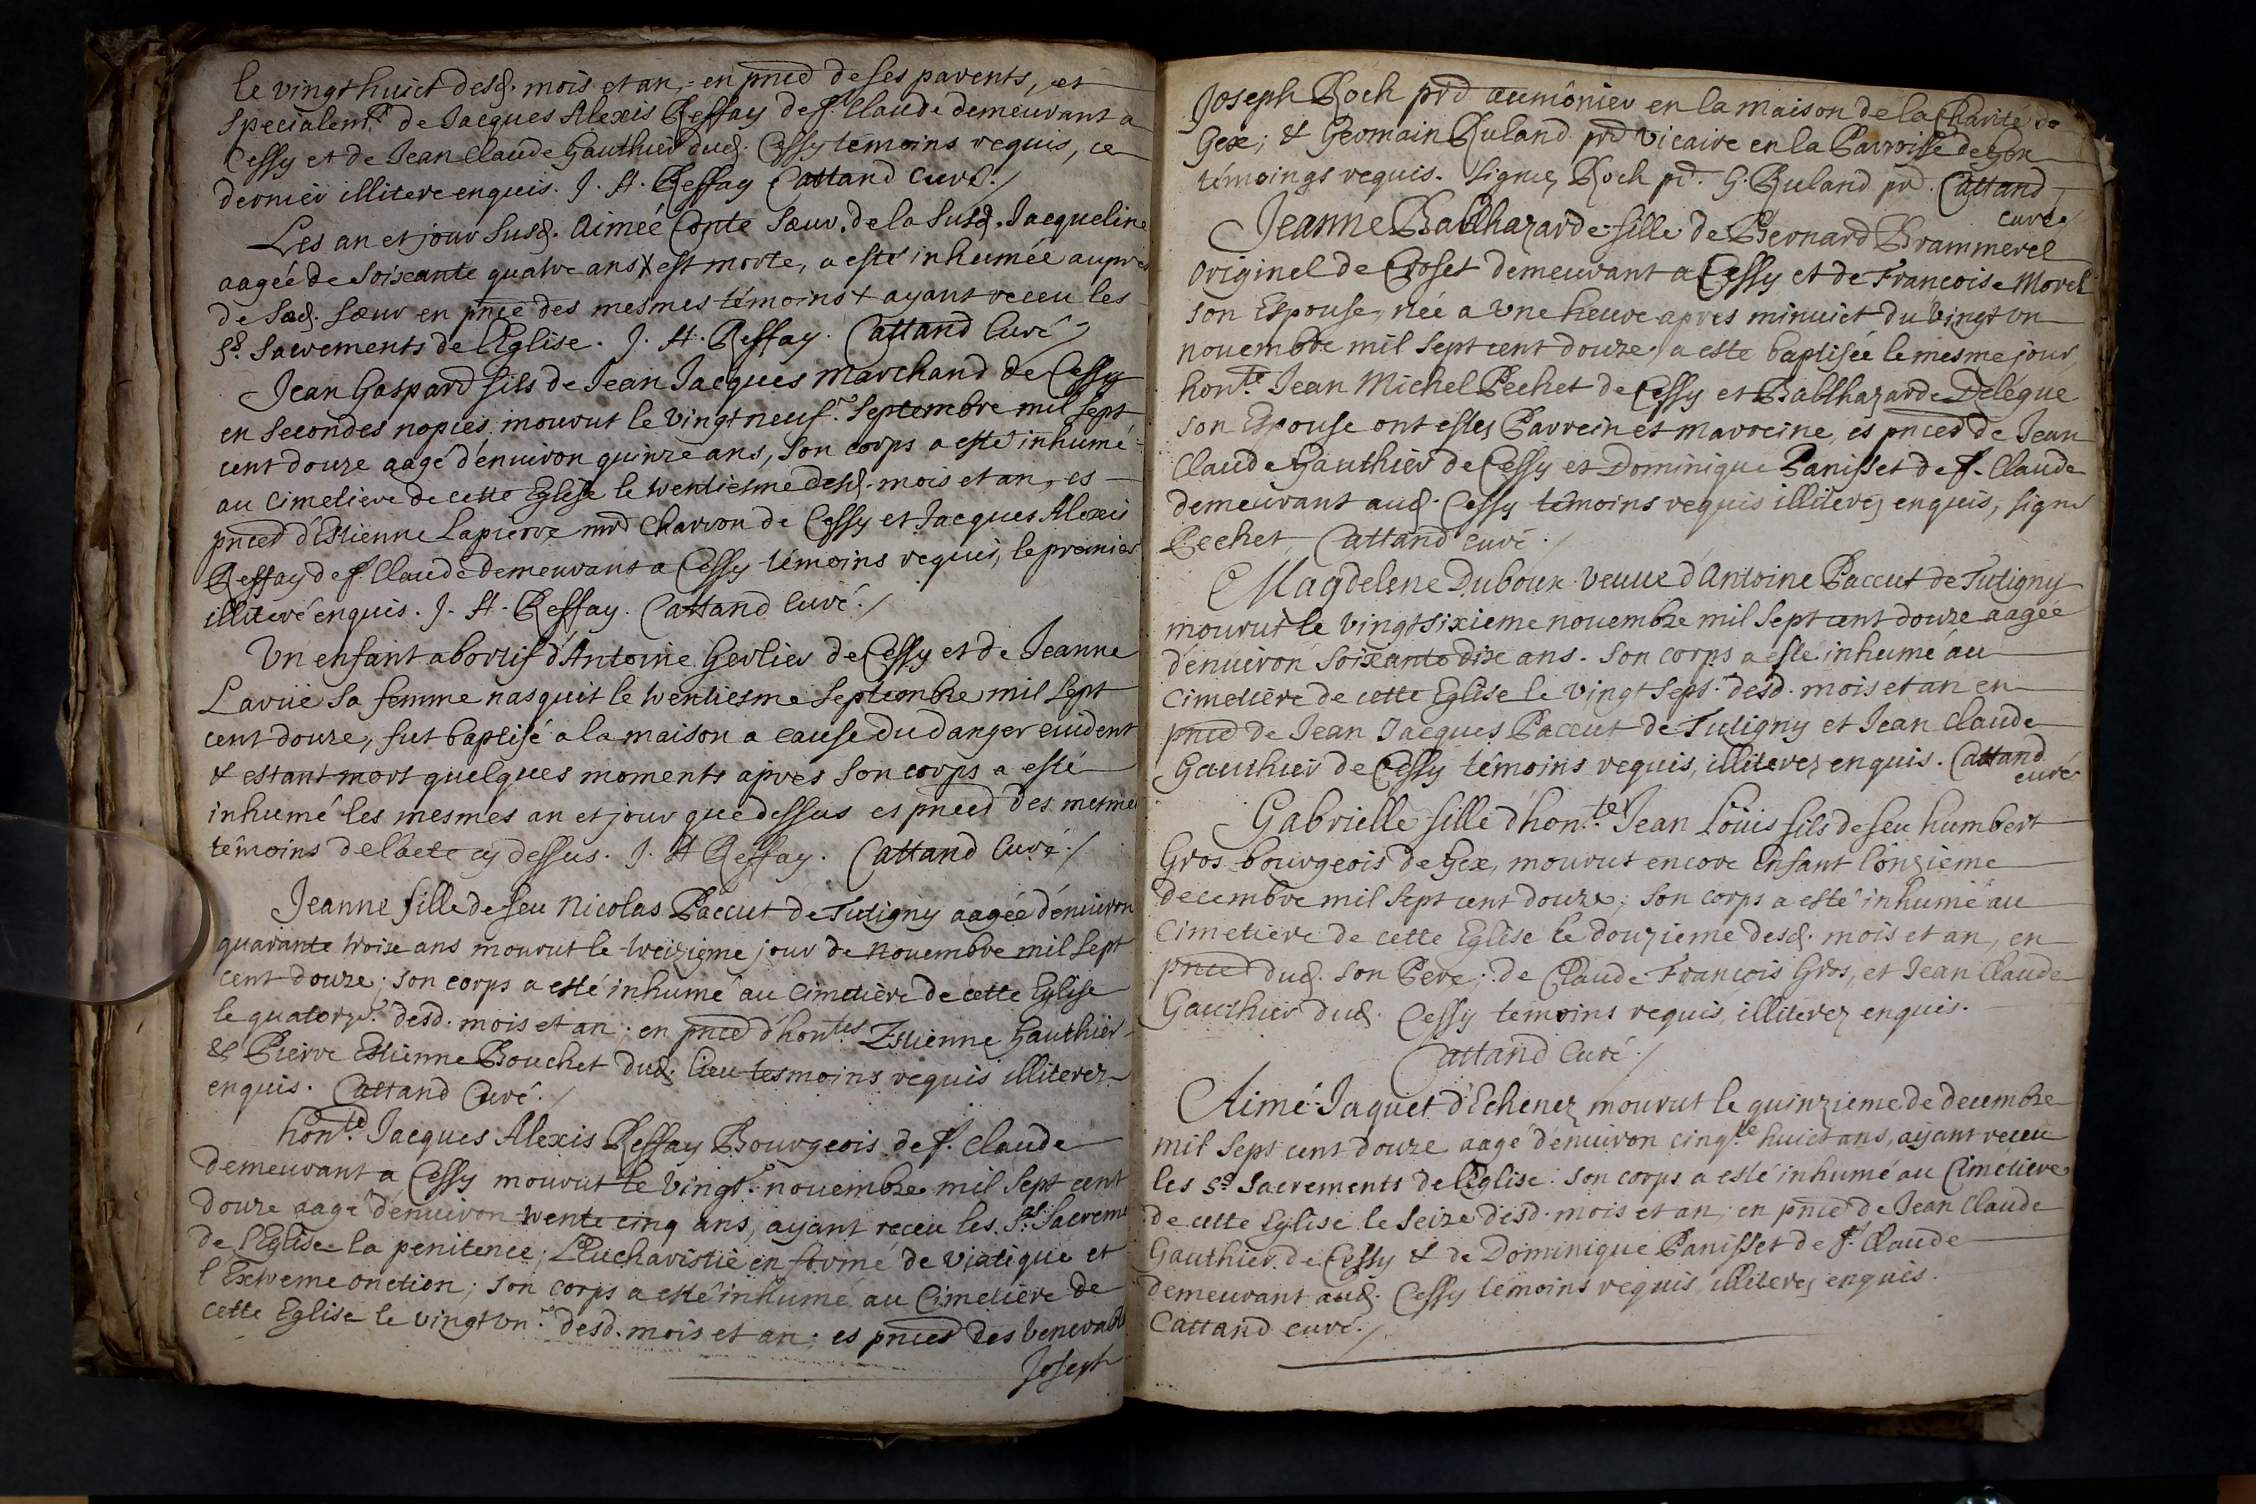 le vingt huict desd. mois et an, en pnce de ses parents, et
specialent. de Jacques Alexis Reffay de st. Claude demeurant a
Cessy et de Jean Claude Gauthier dud. Cessy temoins requis, ce
dernier illitere enquis. J. A. Reffay Cattand Curé./
Les an et jour susd. Aimeé Conte sœur de la susd. Jacqueline
aagée de soisante quatre ans X est morte, a esté inhumée aupres
de sad. sœur en pnce des mesmes témoins + ayant receu les
sts. Sacrements de l'Eglise. J. A. Reffay. Cattand Curé
Jean Gaspard fils de Jean Jacques Marchand de Cessy
en secondes nopces mourut le vingt neuf.e Septembre mil sept
cent douze aagé d'enuiron quinze ans, son corps a esté inhumé
au cimetiere de cette Eglise le trentiesme desd. mois et an, es
pnces d'Estienne Lapierre md Charron de Cessy et Jacques Alexis
Reffay de st. Claude demeurant a Cessy témoins requis, le premier
illiteré enquis. J. A. Reffay. Cattand Curé./
Un enfant abortif d'Antoine Gerlier de Cessy et de Jeanne
Larüe sa femme nasquit le trentiesme Septembre mil sept
cent douze, fut baptisé a la maison a cause du danger euident
& estant mort quelques moments apres son corps a esté
inhumé les mesmes an et jour que dessus es pnces des mesmes
témoins de l'acte cy dessus. J. A Reffay. Cattand Curé./
Jeanne fille de feu Nicolas Paccut de Tutigny aagée d'enuiron
quarante troise ans mourut le treizieme jour de Nouembre mil sept
cent douze; son corps a esté inhumé au cimetière de cette Eglise
le quatorze. desd. mois et an. en pnce d'hon.tes Estienne Gauthier
& Pierre Estienne Bouchet dud. lieu tesmoins requis illiterez
enquis. Cattand Curé./
hon.te Jacques Alexis Reffay Bourgeois de st. Claude
demeurant a Cessy mourut le vingt.e nouembre mil sept cent
douze aagé d'enuiron trente cinq ans, ayant receu les Sts. Sacreme
de l'Eglise la penitence, L'Eucharistie en forme de Viatique et
l'Extreme onction; son corps a esté inhumé au Cimetière de
cette Eglise le vingt un.e desd. mois et an; es pnces des Venerab
Joseph
Joseph Roch prd aumônier en la maison de la Charité de
Gex; & Germain Ruland prd vicaire en la Parroisse de Gex
témoings requis. Signez Roch pd. G. Ruland pd. Cattand
curé./
Jeanne Balthazarde fille de Bernard Brammerel
originel de Croset demeurant a Cessy et de Francoise Morel
son Espouse, née a une heure apres minuict du vingt un
nouembre mil sept cent douze, a este baptisée le mesme jour,
hon.te Jean Michel Pechet de Cessy et Balthazarde Delégue
son Espouse ont estez Parrein et marreine, es pnces de Jean
Claude Gauthier de Cessy et Dominique Panisset de st. Claude
demeurant aud. Cessy témoins requis illiterez enquis, signé
Pechet, Cattand curé./
Magdelene Duboux veuue d'Antoine Paccut de Tutigny
mourut le vingt sixieme nouembre mil sept cent douze aagée
d'enuiron soixante dix ans. son corps a esté inhumé au
cimetière de cette Eglise le vingt sept.e desd. mois et an en
pnce de Jean Jacques Paccut de Tutigny et Jean Claude
Gauthier de Cessy témoins requis, illiterez enquis. Cattand
curé
Gabrielle fille d'hon.te Jean Loüis fils de feu humbert
Gros bourgeois de Gex, mourut encore Enfant l'onzieme
decembre mil sept cent douze; son corps a esté inhumé au
Cimetiere de cette Eglise le douzieme desd. mois et an, en
pnce dud. son Pere; de Claude François Gros, et Jean Claude
Gauthier dud. Cessy temoins requis, illiterez enquis.
Cattand Curé./
Aimé Jaquet d'Echenez mourut le quinzieme de decembre
mil sept cent douze aagé d'enuiron cinq.te huict ans, ayant receu
les Sts. Sacrements de l'Eglise. son corps a esté inhumé au Cimetiere
de cette Eglise le seize desd. mois et an, en pnce de Jean Claude
Gauthier de Cessy & de Dominique Panisset de st. Claude
demeurant aud. Cessy témoins requis illiterez enquis.
Cattand curé./